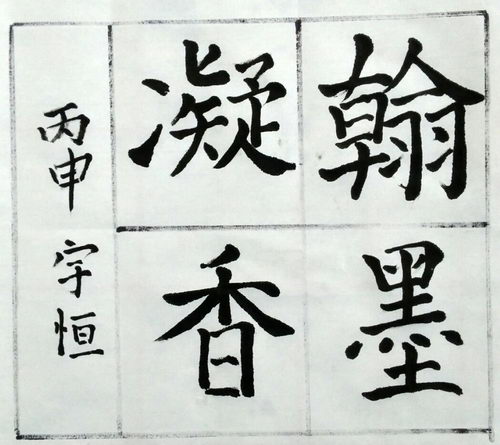 翰墨
凝香
丙申 宇恒